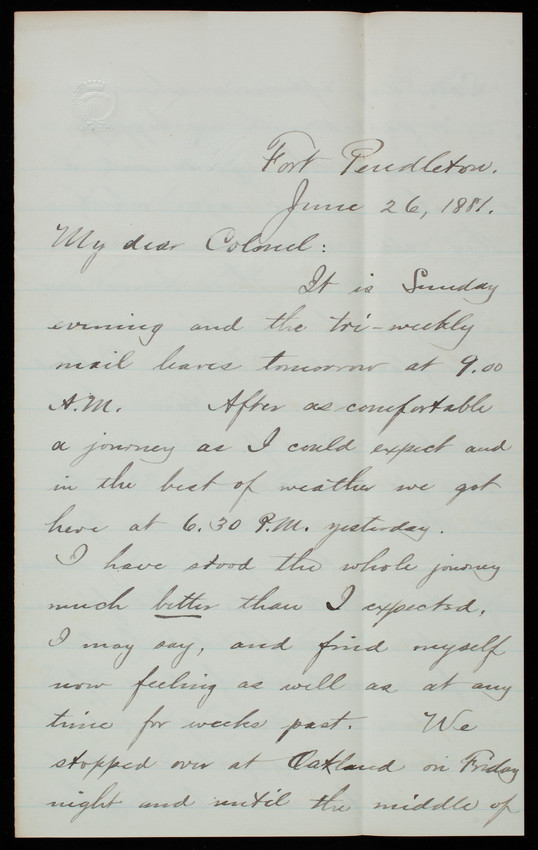 Fort Pendleton.
June 26, 1881.
My dear Colonel:
It is Sunday
evening and the tri-weekly
mail leaves tomorrow at 9.00
A.M. After as comfortable
a journey as I could expect and
in the best of weather we got
here at 6.30 P.M. yesterday.
I have stood the whole journey
much better than I expected,
I may say, and find myself
now feeling as well as at any
time for weeks past. We
stopped over at Oakland on Friday
night and until the middle of